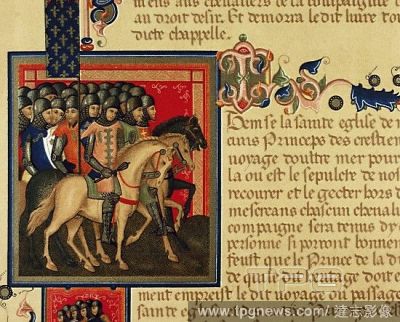 mens ans chevaliers de la compaignie
au droit desir. Et demorra le dit livre tou
dicte chapelle.
Dem se la sainte eglise de
aucuns Princeps des crestiens
voyage doultre mer pour
la ou est le sepulcre de no
recouvrer et le gecter hors d
mescreans chascun cheval
compaigne sera tenus d y
personne si portont bonnem
feust que le Prince de la di
de qui le dit ouvrage doit e
ment empreist le dit voyage ou passag
sainte
www.tpgnews.com/ 達志影像